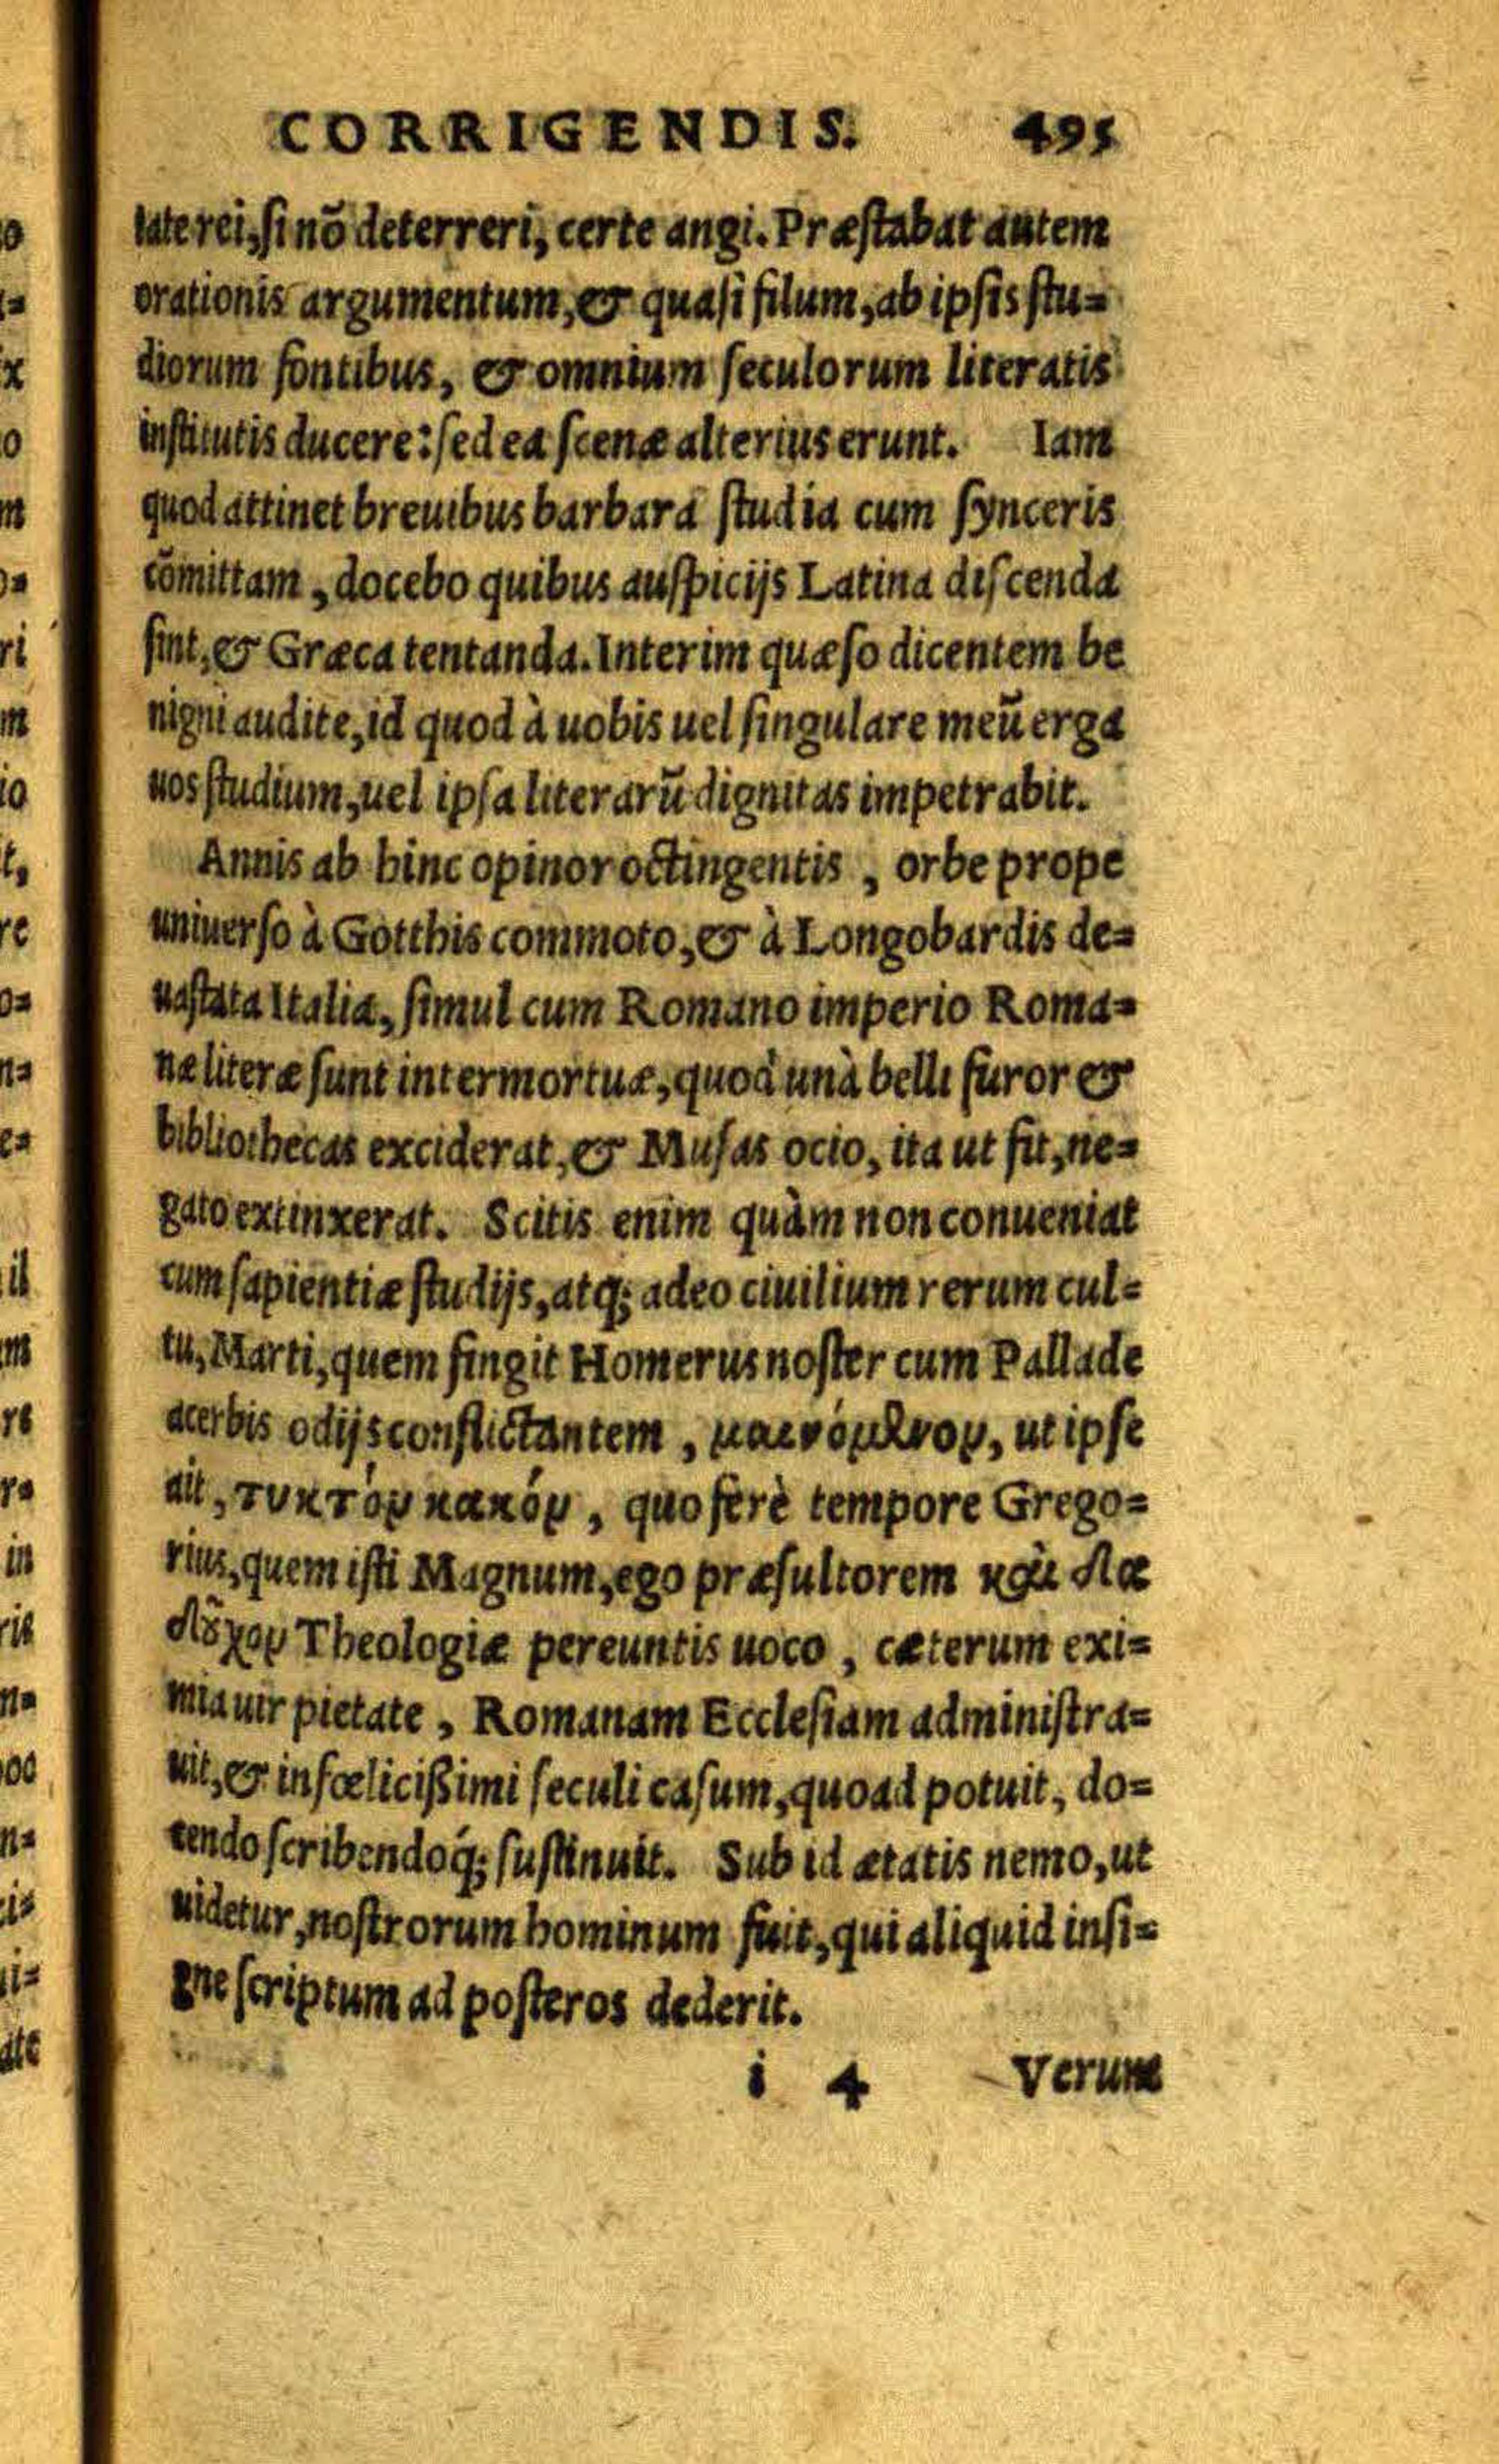 CORRIGENDIS. 495
tate rei, si nõ deterreri, certe angi. Præstabat autem
orationis argumentum, & quasi filum, ab ipsis stu=
diorum fontibus, & omnium seculorum literatis
institutis ducere: sed ea scenæ alterius erunt. Iam
quod attinet breuibus barbara studia cum synceris
cõmittam, docebo quibus auspicijs Latina discenda
sint, & Græca tentanda. Interim quæso dicentem be
nigni audite, id quod à uobis uel singulare meũ erga
uos studium, uel ipsa literarũ dignitas impetrabit.
Annis ab hinc opinor octingentis, orbe prope
uniuerso à Gotthis commoto, & à Longobardis de=
uastata Italia, simul cum Romano imperio Roma=
næ literæ sunt intermortuæ, quòd unà belli furor &
bibliothecas exciderat, & Musas ocio, ita ut fit, ne=
gato extinxerat. Scitis enim quàm non conueniat
cum sapientiæ studijs, atq; adeo ciuilium rerum cul=
tu, Marti, quem fingit Homerus noster cum Pallade
acerbis odijs conflictantem, μαινόμενον, ut ipse
ait, τυκτόν κακόν, quo ferè tempore Grego=
rius, quem isti Magnum, ego præsultorem καὶ δα
δοῦχον Theologiæ pereuntis uoco, cæterum exi=
mia uir pietate, Romanam Ecclesiam administra=
uit, & infœlicißimi seculi casum, quoad potuit, do=
cendo scribendoq́; sustinuit. Sub id ætatis nemo, ut
uidetur, nostrorum hominum fuit, qui aliquid insi=
gne scriptum ad posteros dederit.
i 4 Verum